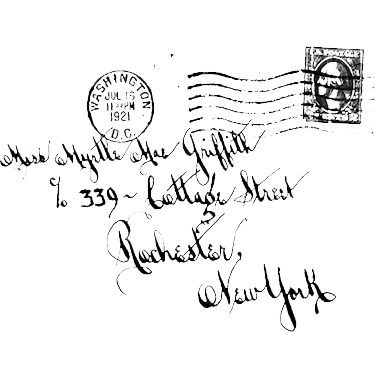 WASHINGTON
JUL 16
1921
D.C.
Miss Myrtle Mae Griffith
℅ 339 ~ Cottage Street
Rochester,
New York